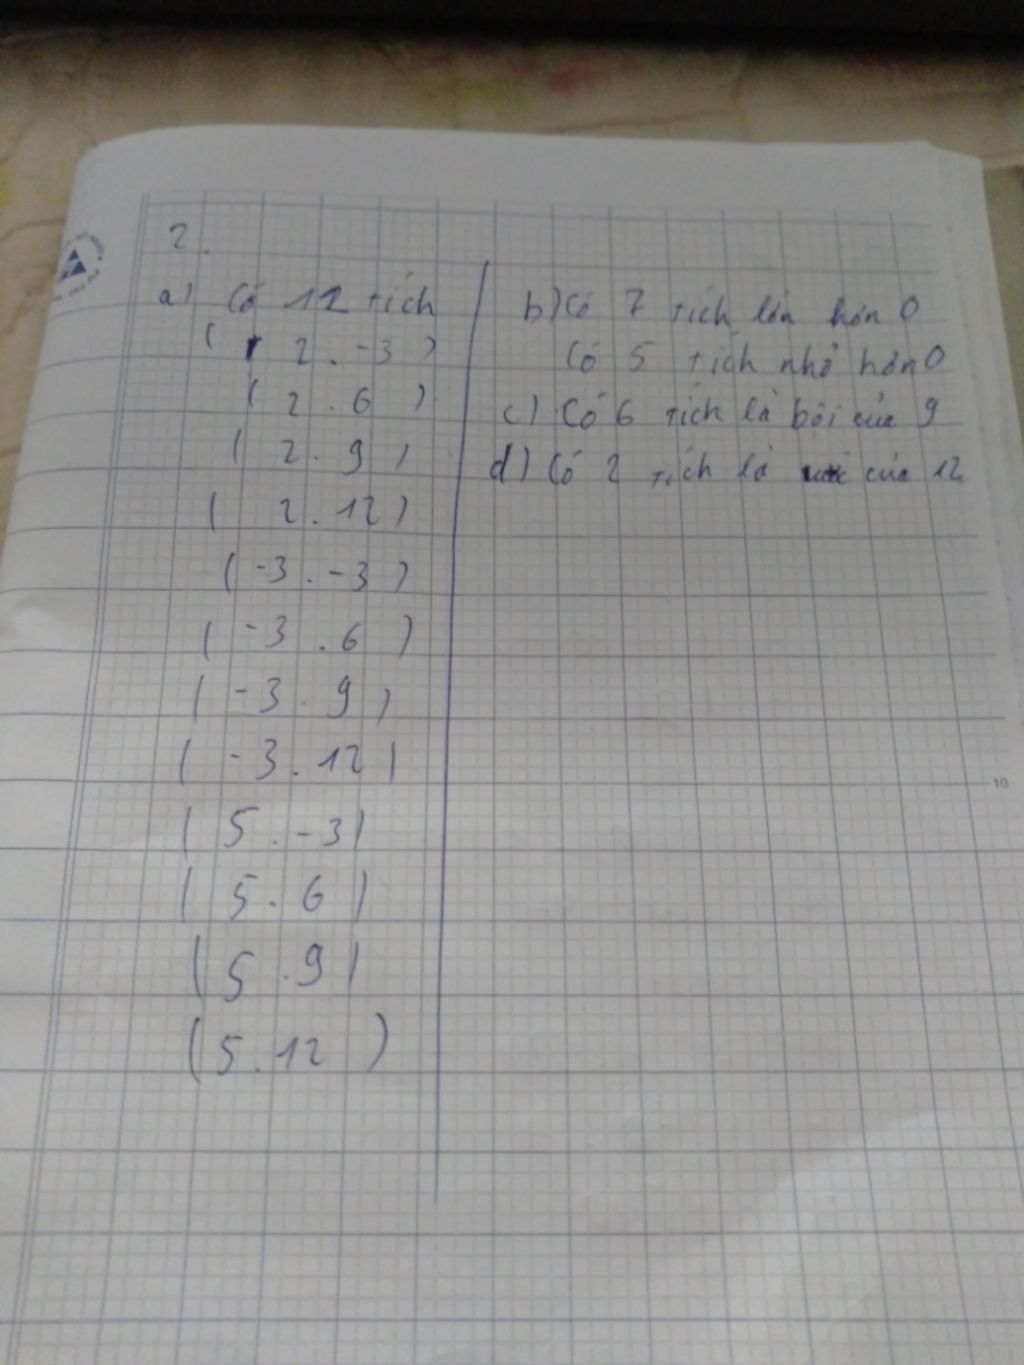 2.
a) Có 12 tích
( 2 . -3 )
( 2 . 6 )
( 2 . 9 )
( 2 . 12 )
( -3 . -3 )
( -3 . 6 )
( -3 . 9 )
( -3 . 12 )
( 5 . -3 )
( 5 . 6 )
( 5 . 9 )
( 5 . 12 )
b) Có 7 tích lớn hơn 0
Có 5 tích nhỏ hơn 0
c) Có 6 tích là bội của 9
d) Có 2 tích là của 12
10